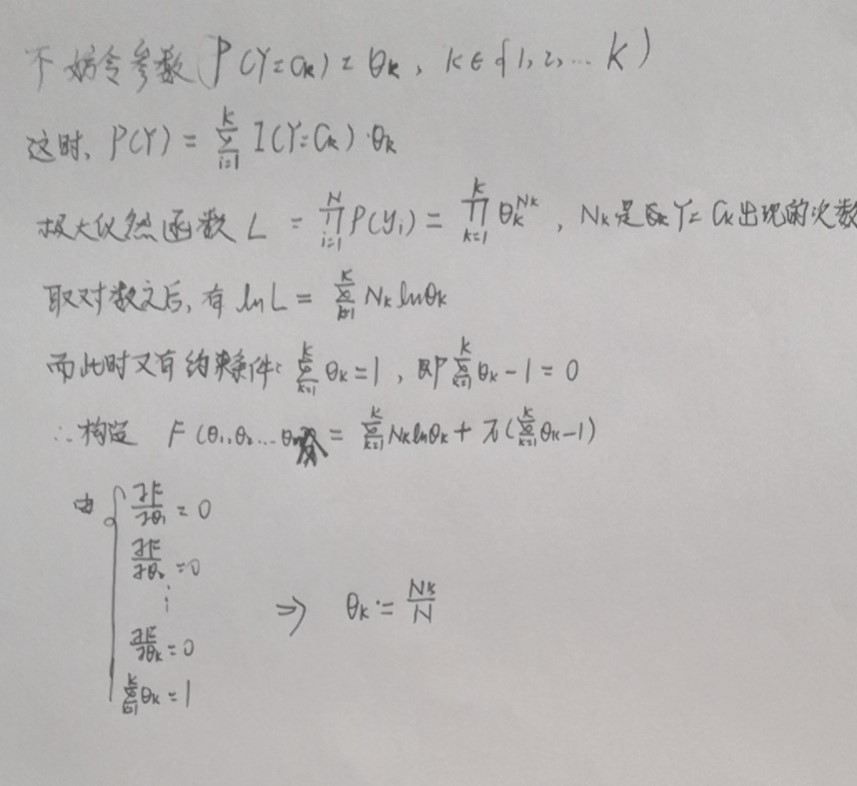 不妨令参数(P(Y=Ck)=θk, k∈{1,2,...K)
这时, P(Y) = ∑_{i=1}^{K} I(Y=Ck)·θk
极大似然函数 L = ∏_{i=1}^{N} P(yi) = ∏_{k=1}^{K} θk^{Nk}, Nk是 Y=Ck出现的次数
取对数之后, 有 lnL = ∑_{k=1}^{K} Nk lnθk
而此时又有约束条件: ∑_{k=1}^{K} θk=1, 即∑_{k=1}^{K} θk-1=0
∴构造 F(θ1,θ2...θ = ∑_{k=1}^{K} Nk lnθk + λ(∑_{k=1}^{K} θk-1)
由 { ∂F/∂θ1 = 0
∂F/∂θ2 = 0
⋮
⇒ θk = Nk/N
∂F/∂θk = 0
∑_{k=1}^{K} θk = 1